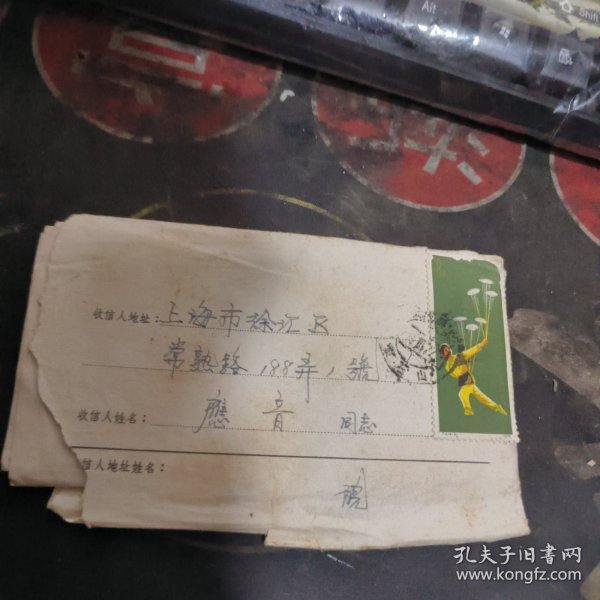 Alt
Shift
收信人地址：上海市徐汇区
常熟路188弄1號
收信人姓名：應音 同志
信人地址姓名：
孔夫子旧书网
www.kongfz.com